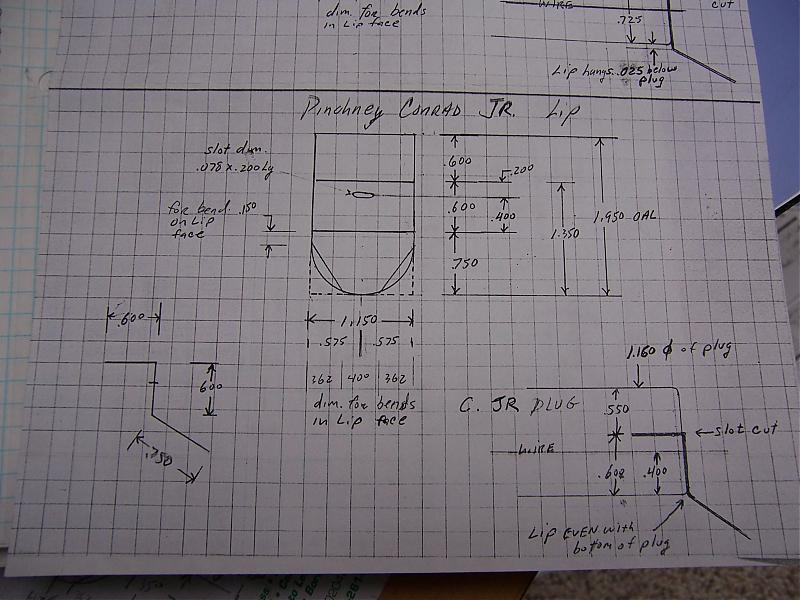 dim. for bends
in Lip face
WIRE
.725
cut
Lip hangs .025 below
plug
Pinchney CONRAD JR. Lip
slot dim.
.078 x .200 Lg
.600
.200
.600
.400
for bend .150
on Lip
face
1.350
1.950 OAL
.750
.600
1.150
.575 .575
.600
.362 .400 .362
dim. for bends
in Lip face
.750
1.160 ϕ of plug
C. JR PLUG
.550
slot cut
WIRE
.600 .400
Lip EVEN with
bottom of plug